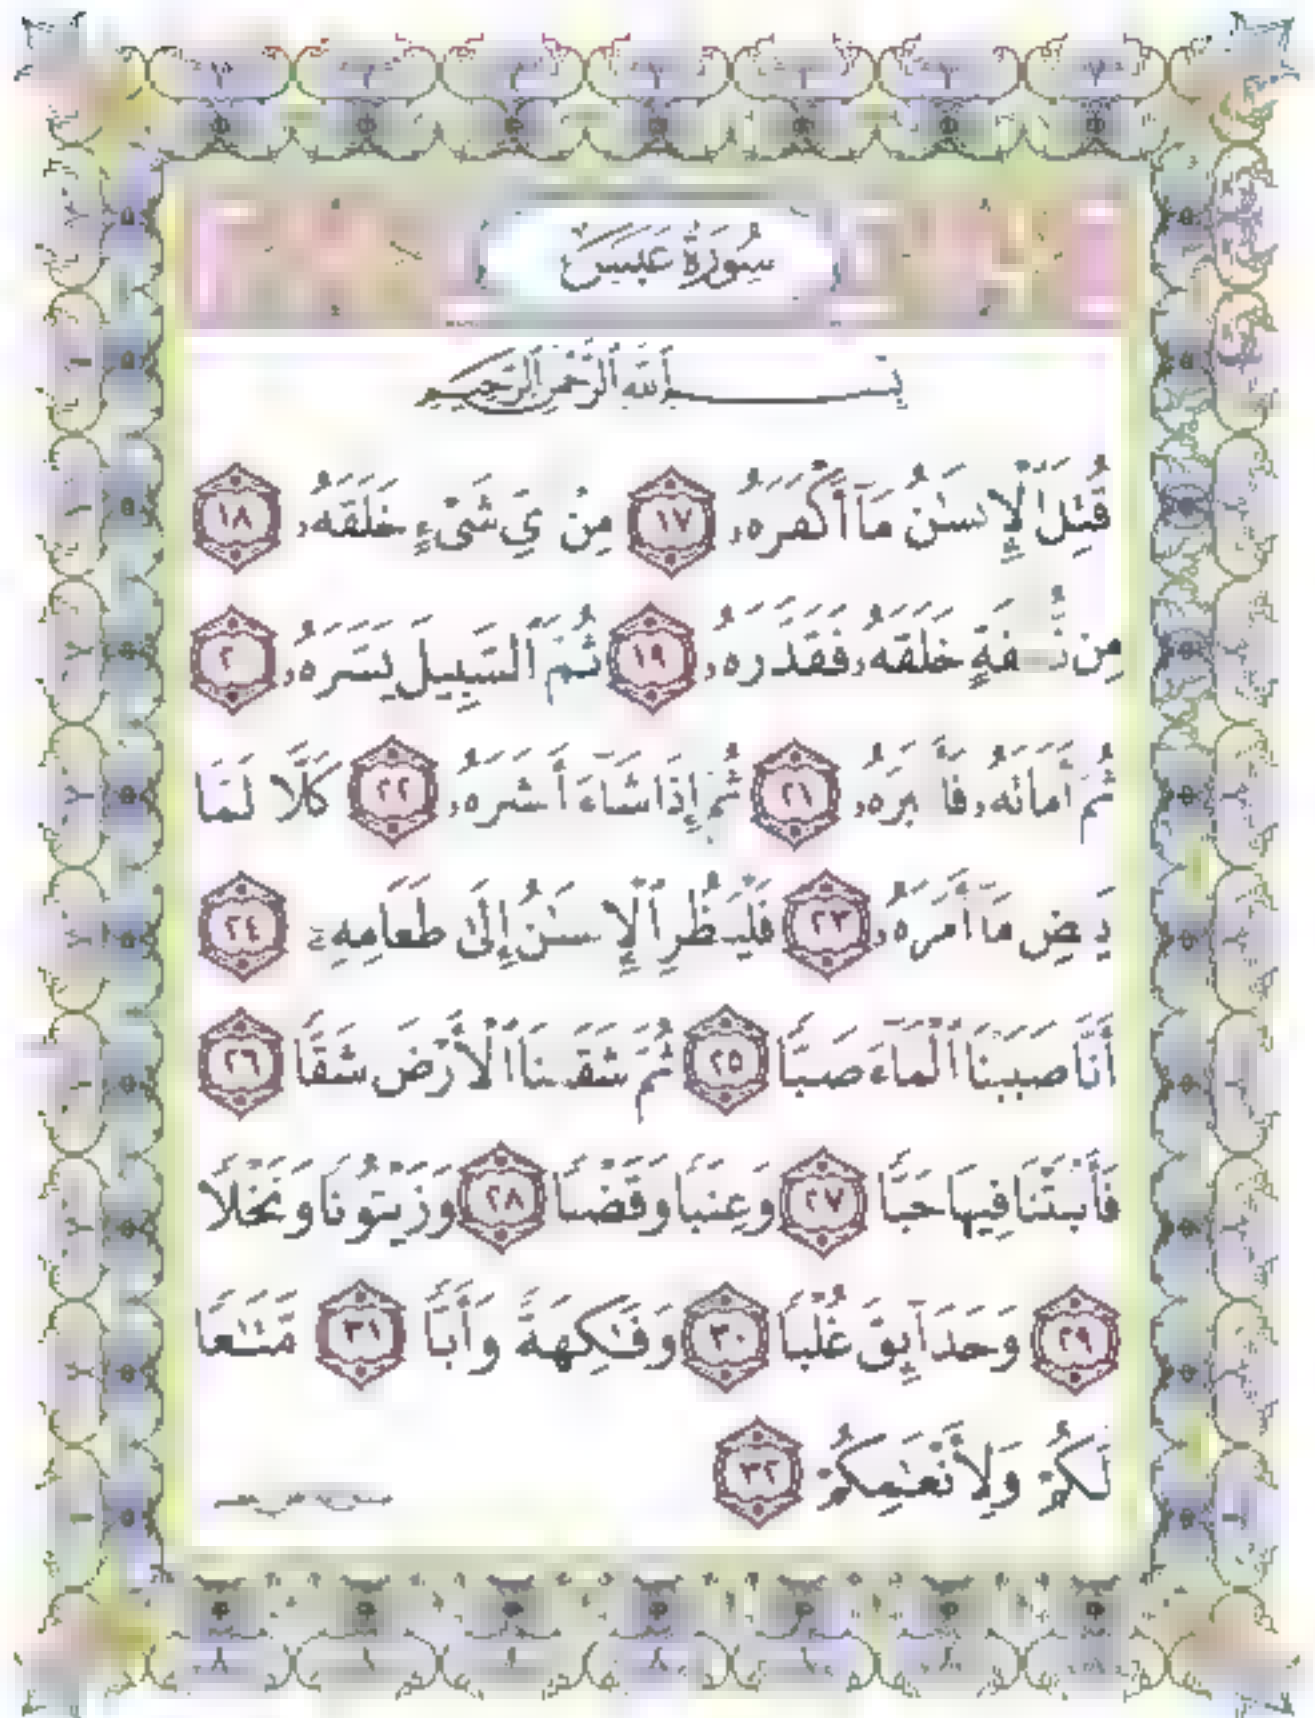 سُورَةُ عَبَسَ
بِسْمِ ٱللَّهِ ٱلرَّحْمَٰنِ ٱلرَّحِيمِ
قُتِلَ ٱلْإِنسَٰنُ مَآ أَكْفَرَهُۥ ١٧ مِنْ شَىْءٍ خَلَقَهُۥ ١٨
مِن خَلَقَهُۥ فَقَدَّرَهُۥ ١٩ ثُمَّ ٱلسَّبِيلَ يَسَّرَهُۥ ٢
ثُمَّ أَمَاتَهُۥ ٢١ ثُمَّ إِذَا شَآءَ ٢٢ كَلَّا لَمَّا
مَآ أَمَرَهُۥ ٢٣ فَلْيَنظُرِ ٱلْإِنسَٰنُ إِلَىٰ طَعَامِهِۦٓ ٢٤
أَنَّا صَبَبْنَا ٱلْمَآءَ صَبًّا ٢٥ ثُمَّ شَقَقْنَا ٱلْأَرْضَ شَقًّا ٢٦
فَأَنۢبَتْنَا فِيهَا حَبًّا ٢٧ وَعِنَبًا وَقَضْبًا ٢٨ وَزَيْتُونًا وَنَخْلًا
٢٩ وَحَدَآئِقَ غُلْبًا ٣٠ وَفَٰكِهَةً وَأَبًّا ٣١ مَّتَٰعًا
لَّكُمْ وَلِأَنْعَٰمِكُمْ ٣٢